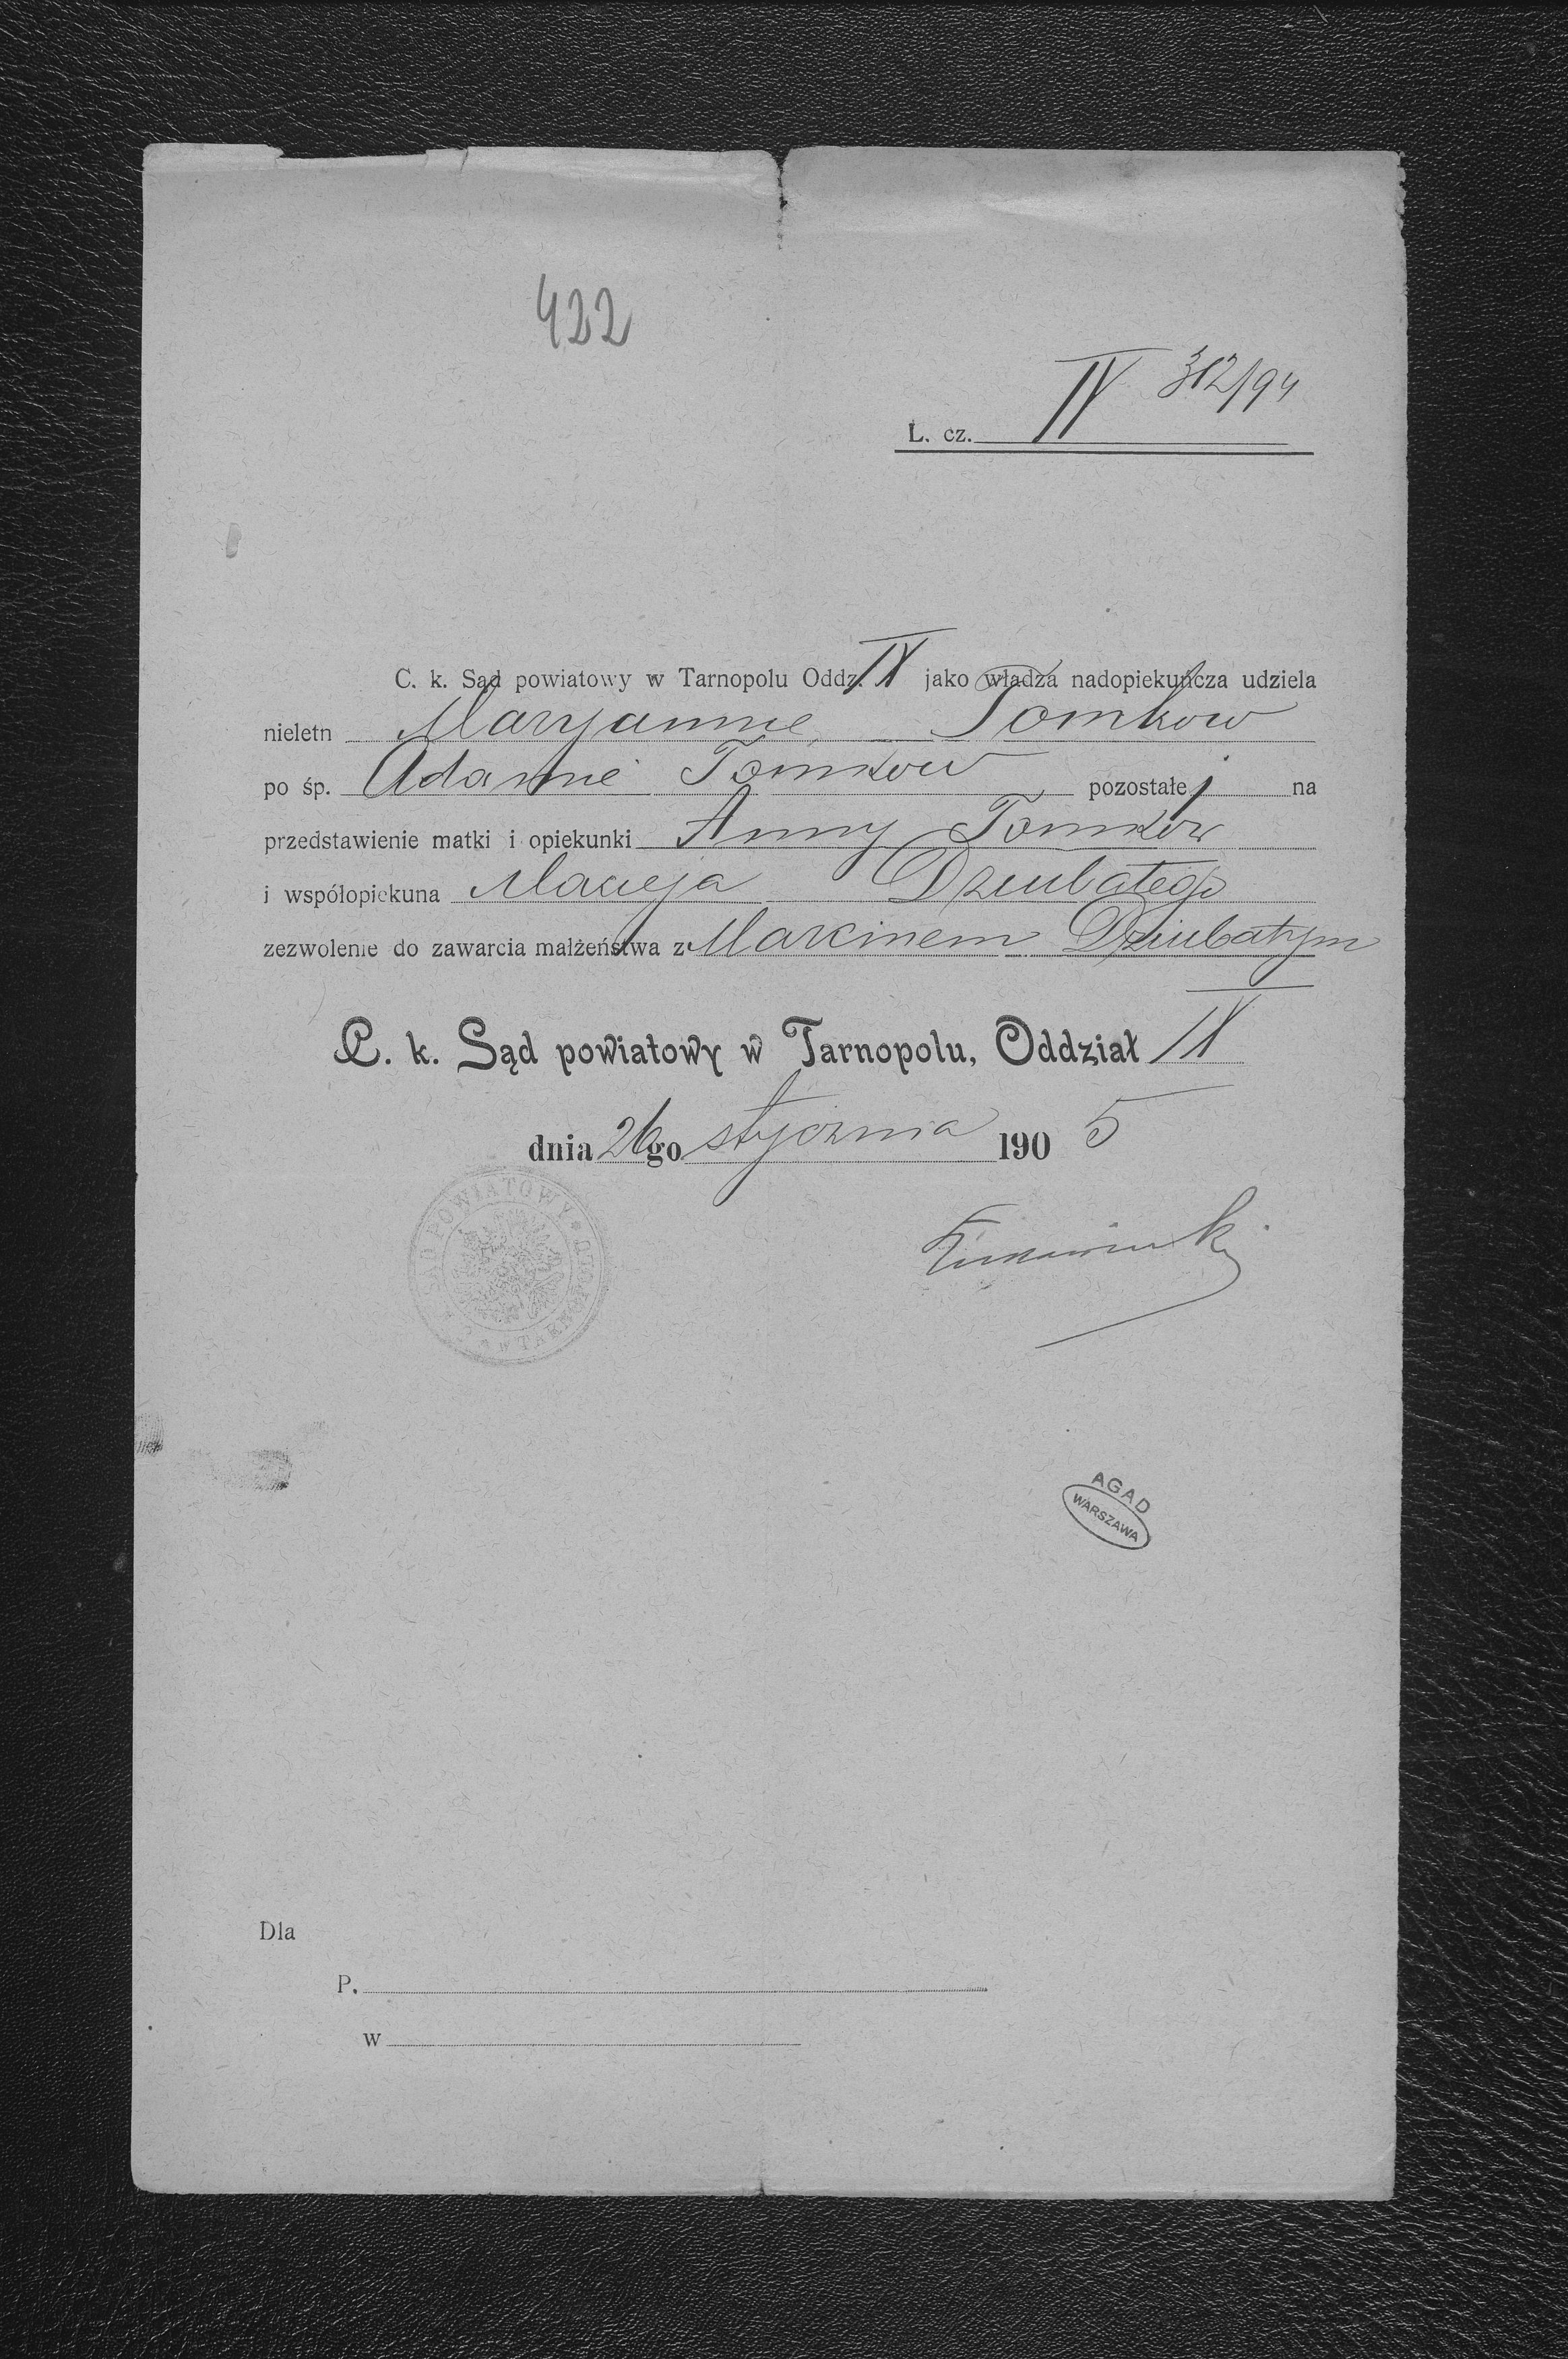 422
L. cz. IX 312/94
C. k. Sąd powiatowy w Tarnopolu Oddz. IX jako władza nadopiekuńcza udziela
nieletn Maryannie Tomków
po śp. Adamie Tomków pozostałej na
przedstawienie matki i opiekunki Anny Tomków
i współopiekuna Macieja Dziubatego
zezwolenie do zawarcia małżeństwa z Marcinem Dziubatym
C. k. Sąd powiatowy w Tarnopolu, Oddział IX
dnia 26go stycznia 1905
SĄD POWIATOWY * w TARNOPOLU
AGAD
WARSZAWA
Dla
P.
w